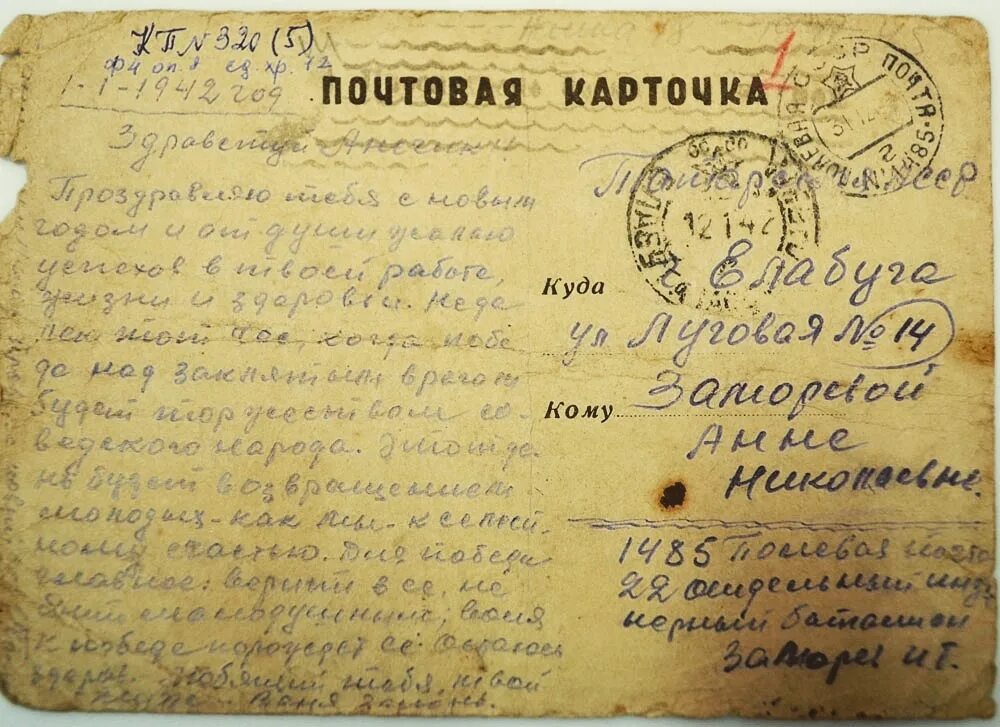 КП № 320 (5)
ф 4 оп. 1 ед. хр. 12
1-1-1942 год
ПОЧТОВАЯ КАРТОЧКА
1
Здравствуй
Проздравляю тебя с новым
годом и от души желаю
успехов в твоей работе,
жизни и здоровья. Неда
лек тот час, когда побе
да над заклятым врагом
будет торжеством со-
ведского народа. Это
будет возвращением
молодых - как мы - к семей
ному счастью. Для победы
главное: верить в ее, не
быть малодушным; воля
к победе ее. Остаюсь
здоров. Любящий тебя, твой
Ваня
СССР ПОЧТА 1485
31.12
12 1 42
Татарская АССР
Куда г. Елабуга
ул Луговая № 14
Кому Заморевой
Анне
Николаевне.
1485 Полевая почта
22 отдельный инже
нерный батальон
Заморев И Т.